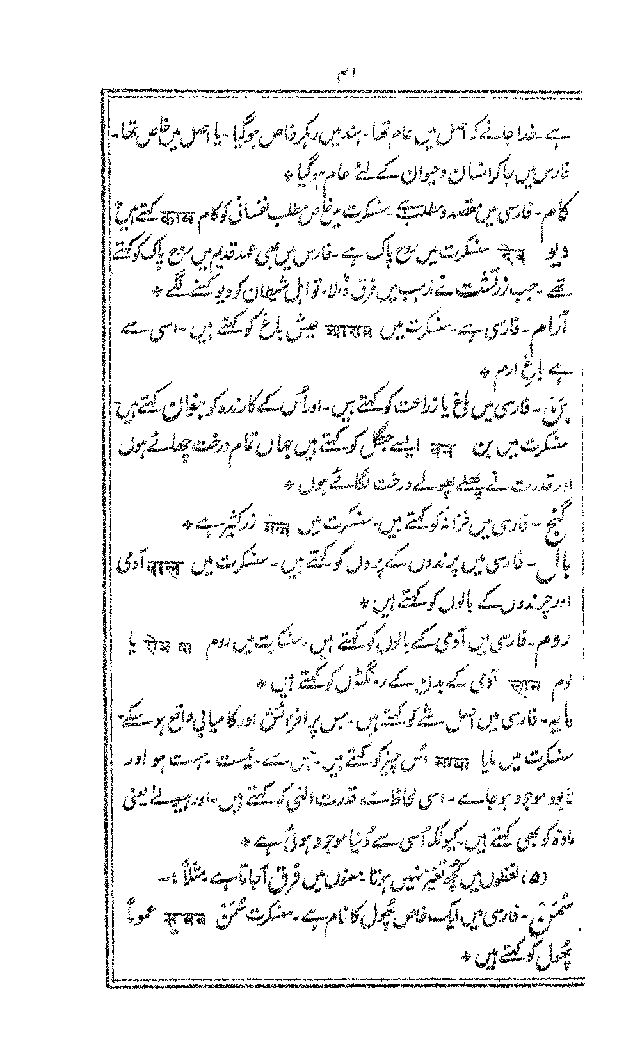 ۳۱
ہے۔ خدا جانے کہ اصل میں عام تھا۔ ہند میں رہ کر خاص ہو گیا۔ یا اصل میں خاص تھا۔
فارس میں جا کر انسان و حیوان کے لئے عام ہو گیا *
کام۔ فارسی میں مقصد و مطلب ہے سنسکرت میں خاص مطلب نفسانی کو کام काम کہتے ہیں
دیو देव سنسکرت میں روح پاک ہے۔ فارس میں بھی عہد قدیم میں روح پاک کو کہتے
تھے۔ جب زرتشت نے مذہب میں فرق ڈالا۔ تو اہل شیطان کو دیو کہنے لگے *
آرام۔ فارسی ہے۔ سنسکرت میں आराम عیش باغ کو کہتے ہیں۔ اسی سے
ہے باغ ارم *
بن۔ فارسی میں باغ یا زراعت کو کہتے ہیں۔ اور اُس کے کارندہ کو بنوان کہتے ہیں
سنسکرت میں بن वन ایسے جنگل کو کہتے ہیں جہاں تمام درخت چھائے ہوں
اور قدرت نے پھلے پھولے درخت لگائے ہوں *
گنج۔ فارسی میں خزانہ کو کہتے ہیں۔ سنسکرت میں गंज زر کثیر ہے *
بال۔ فارسی میں پرندوں کے پروں کو کہتے ہیں۔ سنسکرت میں बाल آدمی
اور چرندوں کے بالوں کو کہتے ہیں *
روم۔ فارسی میں آدمی کے بالوں کو کہتے ہیں۔ سنسکرت میں روم रोम یا
لوم लोम آدمی کے بدن کے رونگٹوں کو کہتے ہیں *
مایہ۔ فارسی میں اصل شے کو کہتے ہیں۔ جس پر افزائش اور کامیابی واقع ہو سکے۔
سنسکرت میں مایا माया اُس چیز کو کہتے ہیں۔ جس سے نیست ہست ہو اور
نابود موجود ہو جائے۔ اسی لحاظ سے قدرت الٰہی کو کہتے ہیں۔ اور ہیولے یعنی
مادّہ کو بھی کہتے ہیں۔ کیونکہ اُسی سے دُنیا موجود ہوئی ہے *
(۵) لفظوں میں کچھ تغیّر نہیں ہوتا۔ معنوں میں فرق آجاتا ہے۔ مثلاً:۔
سُمَن۔ فارسی میں ایک خاص پھول کا نام ہے۔ سنسکرت سُمَن सुमन عموماً
پھول کو کہتے ہیں *